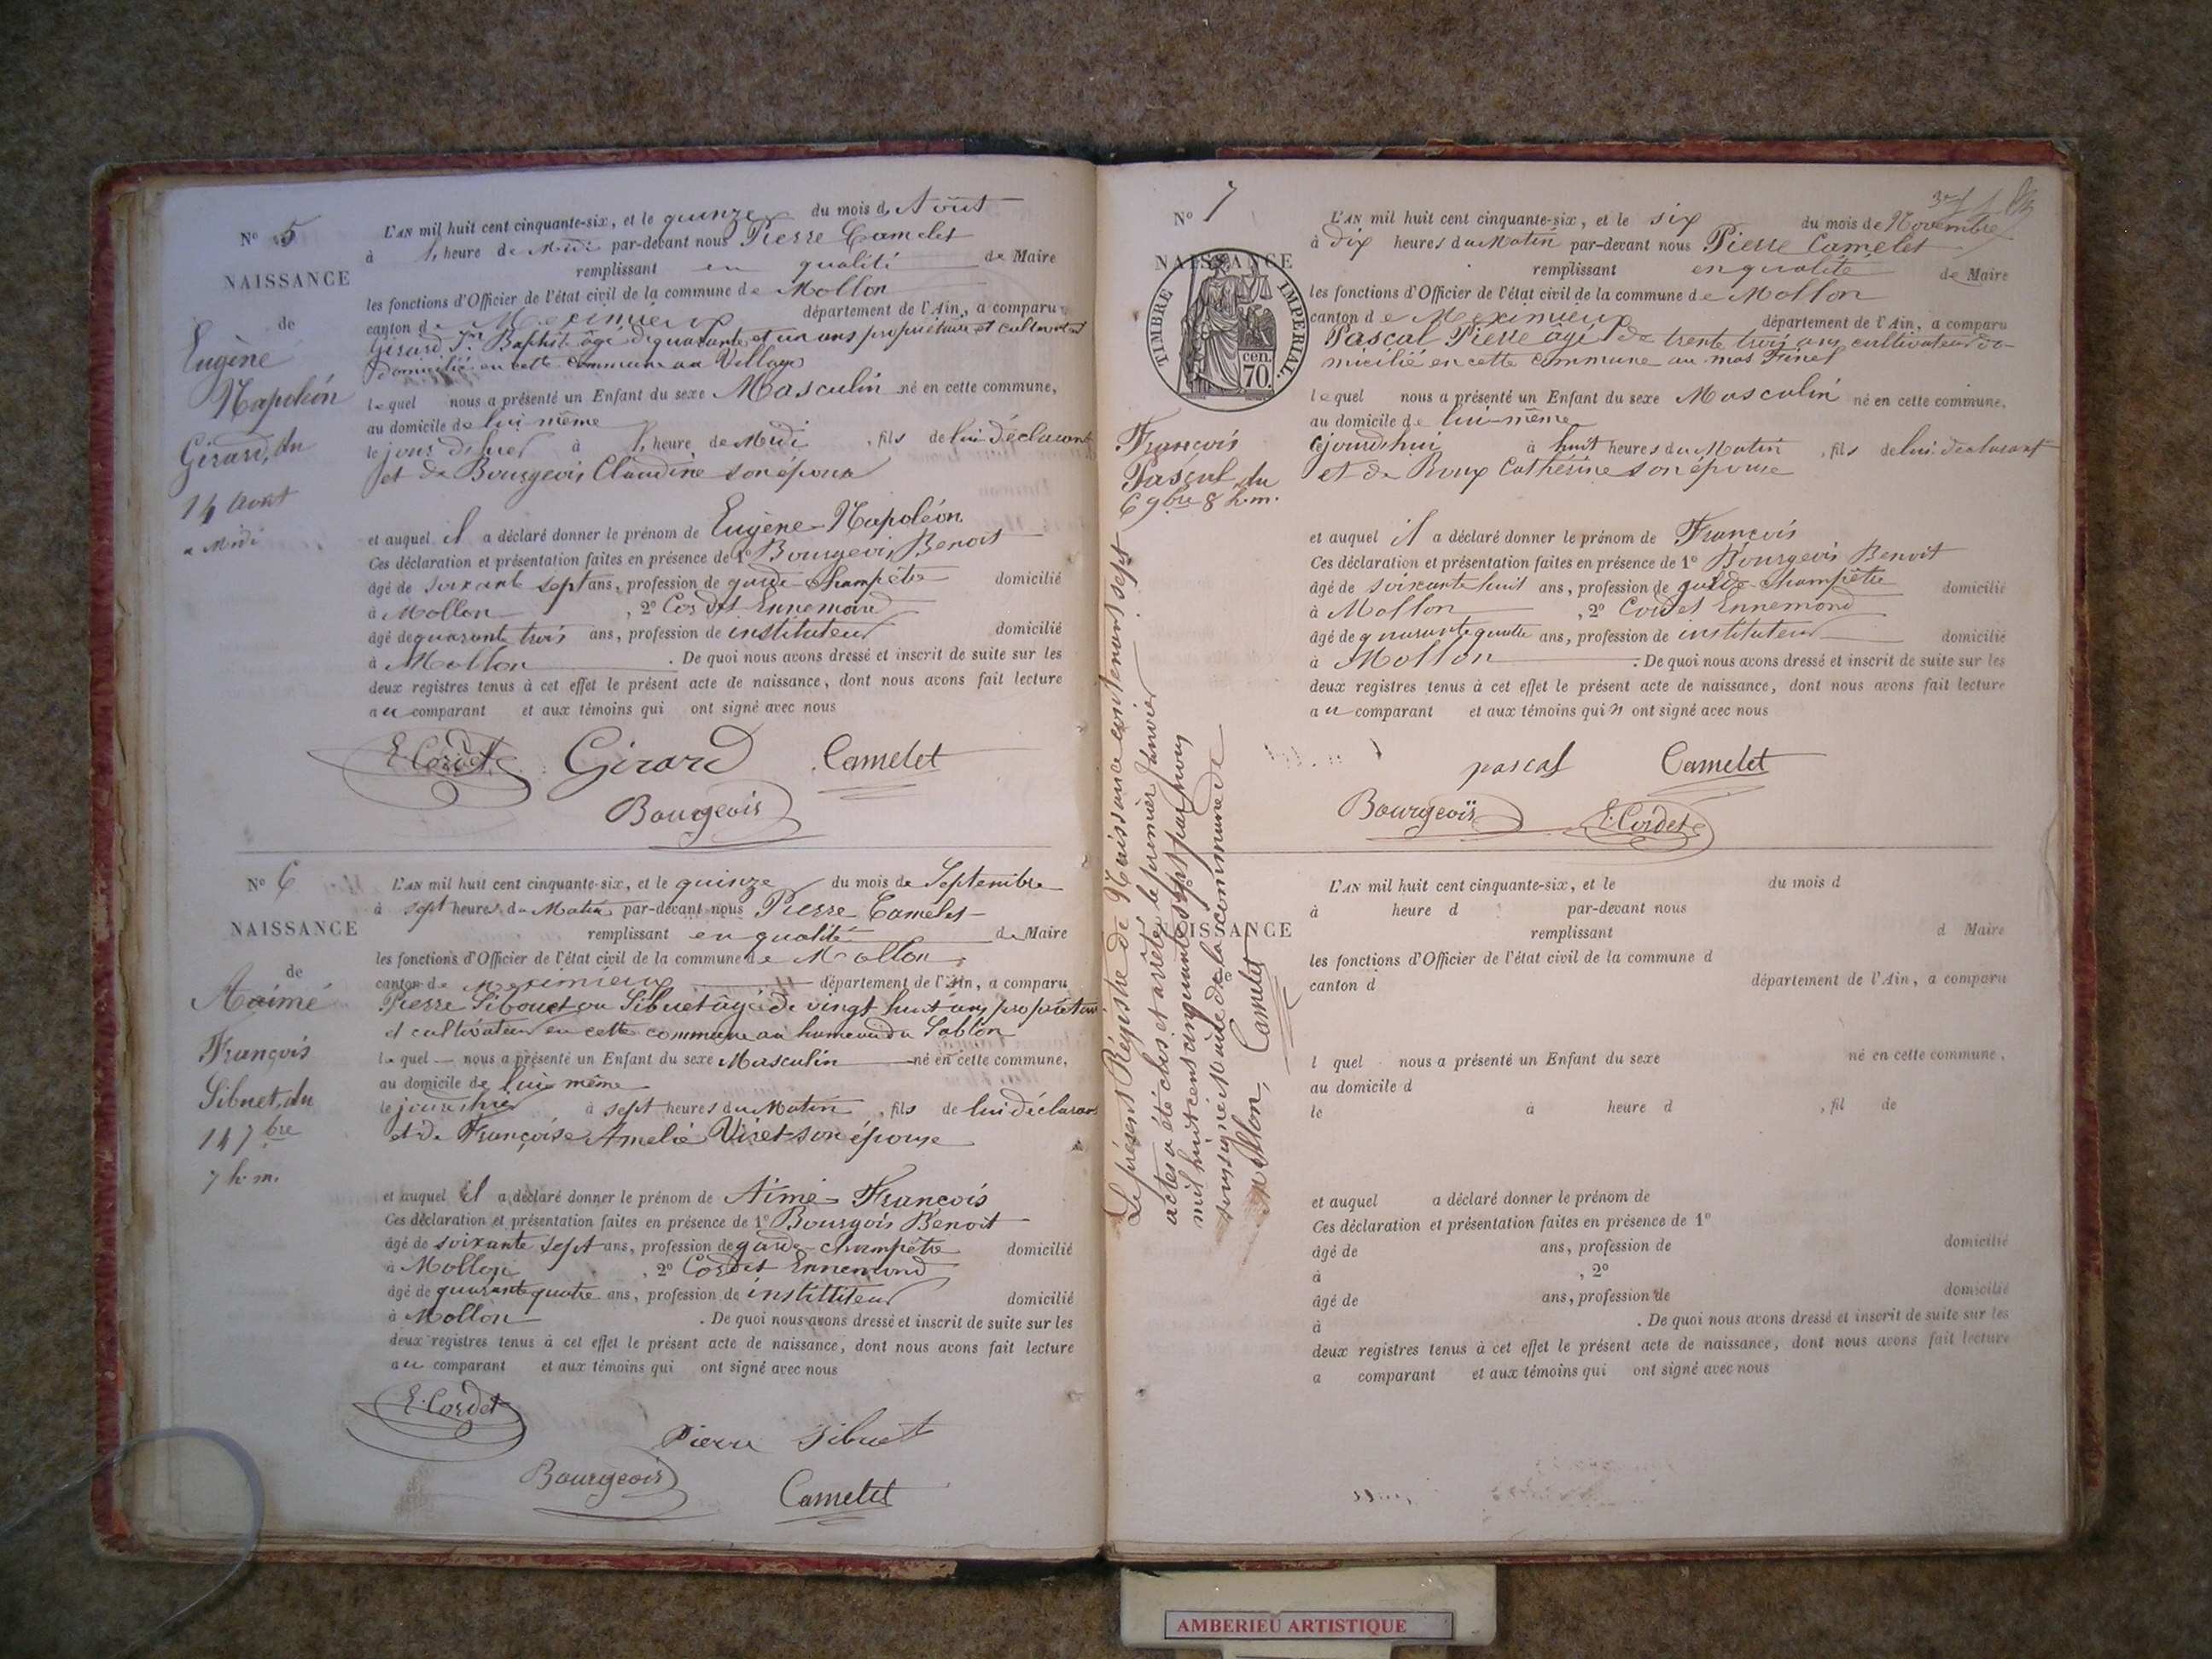 N° 5
NAISSANCE
de
Eugène
Napoléon
Girard, du
14 Aout
a Midi
L'AN mil huit cent cinquante-six, et le quinze du mois d Août
à 1, heure de Midi par-devant nous Pierre Camelet
remplissant en qualité de Maire
les fonctions d'Officier de l'état civil de la commune de Mollon
canton de Meximieux département de l'Ain, a comparu
Girard Jn Baptiste âgé de quarante et un ans propriétaire et cultivateur
domicilié en cette commune au Village
lequel nous a présenté un Enfant du sexe Masculin né en cette commune,
au domicile de lui même
le jour d'hier à 1, heure de Midi , fils de lui déclarant
et de Bourgeois Claudine son épouse
et auquel il a déclaré donner le prénom de Eugène-Napoléon
Ces déclaration et présentation faites en présence de 1° Bourgeois Benoit
âgé de soixante sept ans, profession de garde-Champêtre domicilié
à Mollon , 2° Cordet Ennemond
âgé de quarante trois ans, profession de instituteur domicilié
à Mollon . De quoi nous avons dressé et inscrit de suite sur les
deux registres tenus à cet effet le présent acte de naissance, dont nous avons fait lecture
au comparant et aux témoins qui ont signé avec nous
E. Cordet Girard Camelet
Bourgeois
N° 6
NAISSANCE
de
Aaimé
François
Sibuet, du
14 7bre
7 h. m.
L'AN mil huit cent cinquante-six, et le quinze du mois de Septembre
à sept heures du Matin par-devant nous Pierre Camelet
remplissant en qualité de Maire
les fonctions d'Officier de l'état civil de la commune de Mollon
canton de Meximieux département de l'Ain, a comparu
Pierre Sibouet ou Sibuet âgé de vingt huit ans propriétaire
et cultivateur en cette commune au hameau du Sablon
lequel nous a présenté un Enfant du sexe Masculin né en cette commune,
au domicile de lui même
le jour d'hier à sept heures du Matin , fils de lui déclarant
et de Françoise Amelie Viret son épouse
et auquel il a déclaré donner le prénom de Aimé François
Ces déclaration et présentation faites en présence de 1° Bourgois Benoit
âgé de soixante sept ans, profession de garde-champêtre domicilié
à Mollon , 2° Cordet Ennemond
âgé de quarante quatre ans, profession de instituteur domicilié
à Mollon . De quoi nous avons dressé et inscrit de suite sur les
deux registres tenus à cet effet le présent acte de naissance, dont nous avons fait lecture
au comparant et aux témoins qui ont signé avec nous
E. Cordet
Pierre Sibuet
Bourgeois Camelet
N° 7
NAISSANCE
TIMBRE IMPERIAL.
cen.
70.
François
Pascal, du
6 9bre 8 h. m.
L'AN mil huit cent cinquante-six, et le six du mois de Novembre
à dix heures du Matin par-devant nous Pierre Camelet
remplissant en qualité de Maire
les fonctions d'Officier de l'état civil de la commune de Mollon
canton de Meximieux département de l'Ain, a comparu
Pascal Pierre âgé de trente trois ans cultivateur do-
micilié en cette commune au mas
lequel nous a présenté un Enfant du sexe Masculin né en cette commune,
au domicile de lui-même
cejourd'hui à huit heures du Matin , fils de lui déclarant
et de Roux Catherine son épouse
et auquel il a déclaré donner le prénom de François
Ces déclaration et présentation faites en présence de 1° Bourgeois Benoit
âgé de soixante huit ans, profession de garde-Champêtre domicilié
à Mollon , 2° Cordet Ennemond
âgé de quarante quatre ans, profession de instituteur domicilié
à Mollon . De quoi nous avons dressé et inscrit de suite sur les
deux registres tenus à cet effet le présent acte de naissance, dont nous avons fait lecture
au comparant et aux témoins qui ont signé avec nous
pascal Camelet
Bourgeois E. Cordet
Le présent Régistre de Naissance contenant sept
actes a été clos et arrêté le premier Janvier
mil huit cent cinquante sept par nous
soussigné Maire de la commune de
Mollon, Camelet
NAISSANCE
L'AN mil huit cent cinquante-six, et le du mois d
à heure d par-devant nous
remplissant d Maire
les fonctions d'Officier de l'état civil de la commune d
canton d département de l'Ain, a comparu
l quel nous a présenté un Enfant du sexe né en cette commune,
au domicile d
le à heure d , fil de
et auquel a déclaré donner le prénom de
Ces déclaration et présentation faites en présence de 1°
âgé de ans, profession de domicilié
à , 2°
âgé de ans, profession de domicilié
à . De quoi nous avons dressé et inscrit de suite sur les
deux registres tenus à cet effet le présent acte de naissance, dont nous avons fait lecture
a comparant et aux témoins qui ont signé avec nous
AMBERIEU ARTISTIQUE